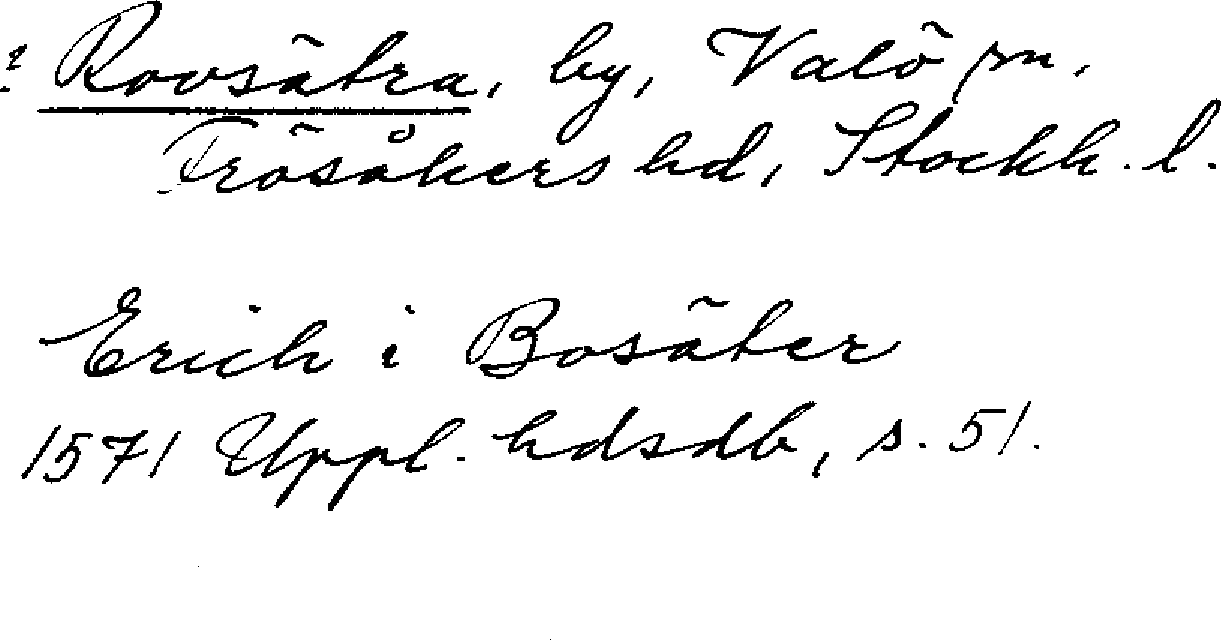 ? Rovsätra, by, Valö sn,
Frösåkers hd, Stockh. l.
Erich i Bosäter
1571 Uppl. hdsdb, s. 51.